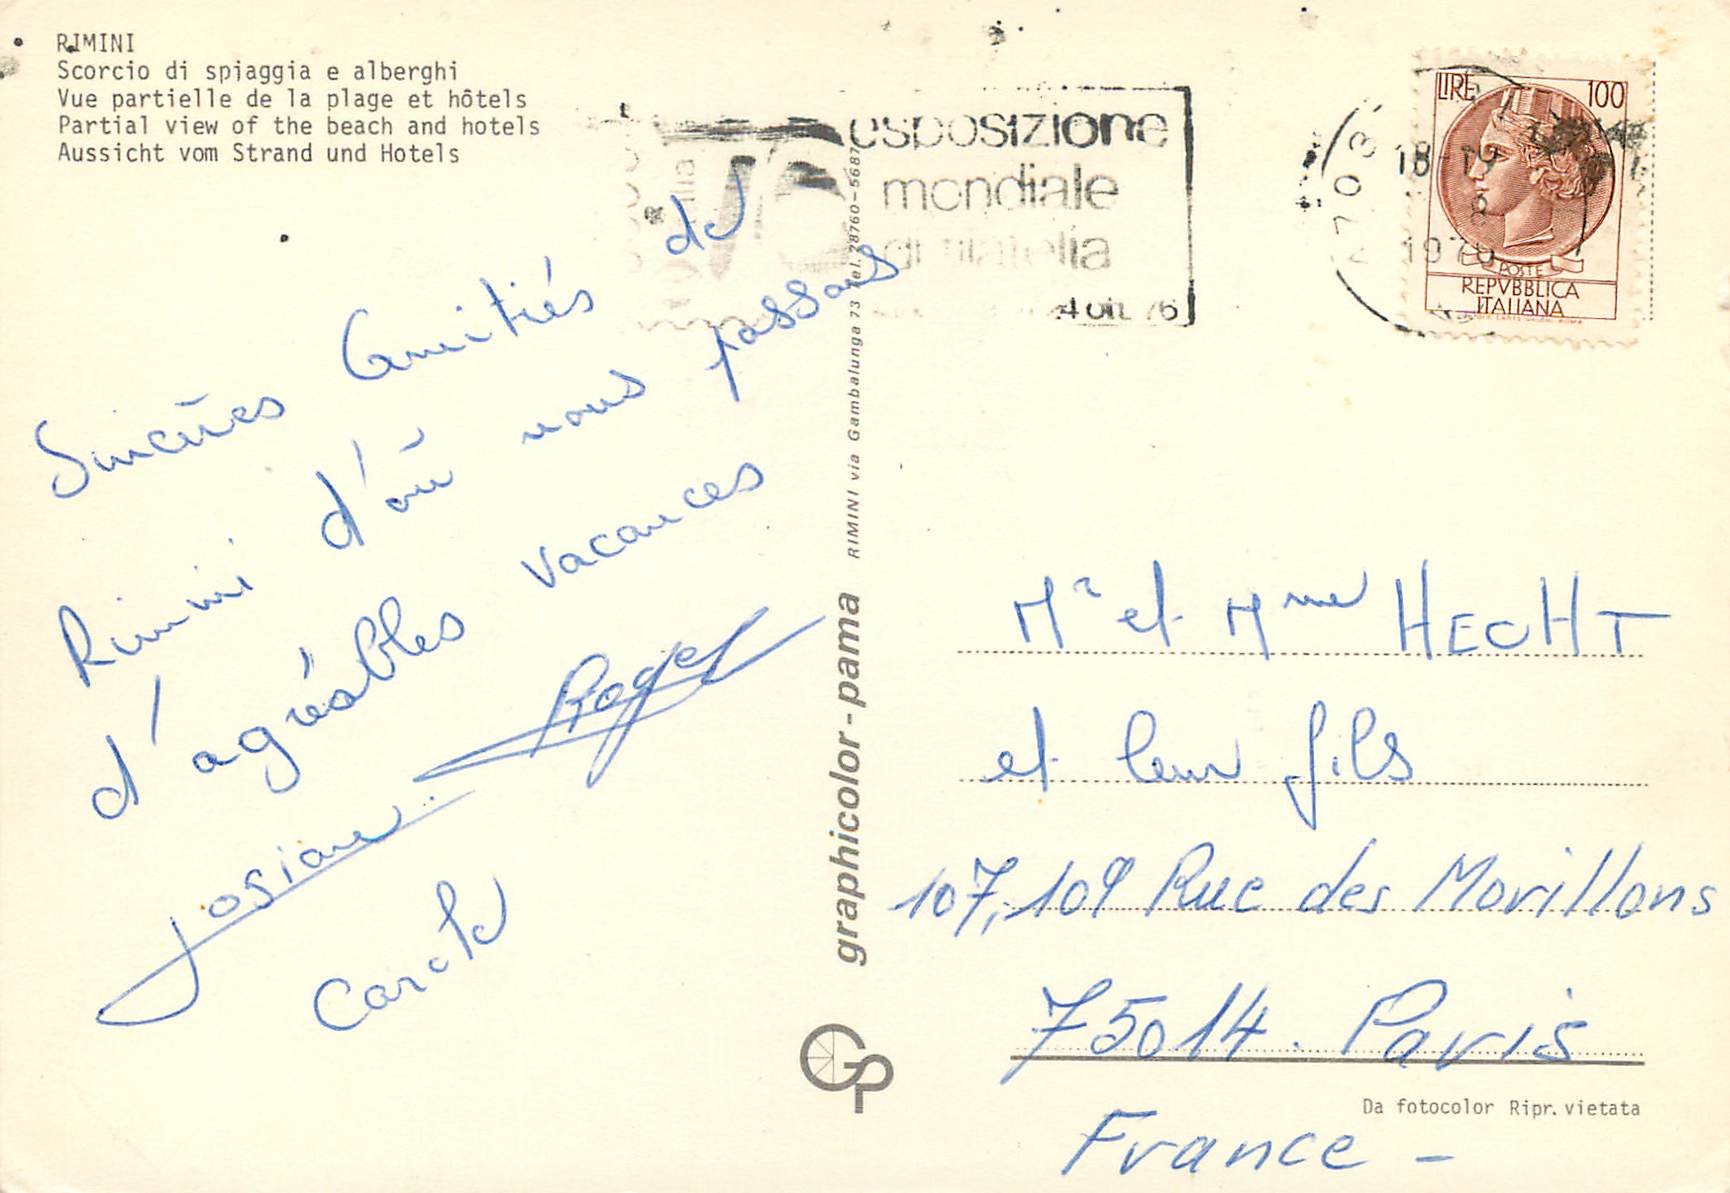 RIMINI
Scorcio di spiaggia e alberghi
Vue partielle de la plage et hôtels
Partial view of the beach and hotels
Aussicht vom Strand und Hotels
esposizione
mondiale
di filatelia
18-19
8
1976
LIRE 100
POSTE
REPVBBLICA
ITALIANA
Sincères Amitiés de
Rimini d'où nous passons
d'agréables vacances
Roger
Josiane
Carole
graphicolor - pama RIMINI via Gambalunga 73 Tel. 28760-5687
GP
Mr et Mme HECHT
et leur fils
107,109 Rue des Morillons
75014. Paris
France -
Da fotocolor Ripr. vietata